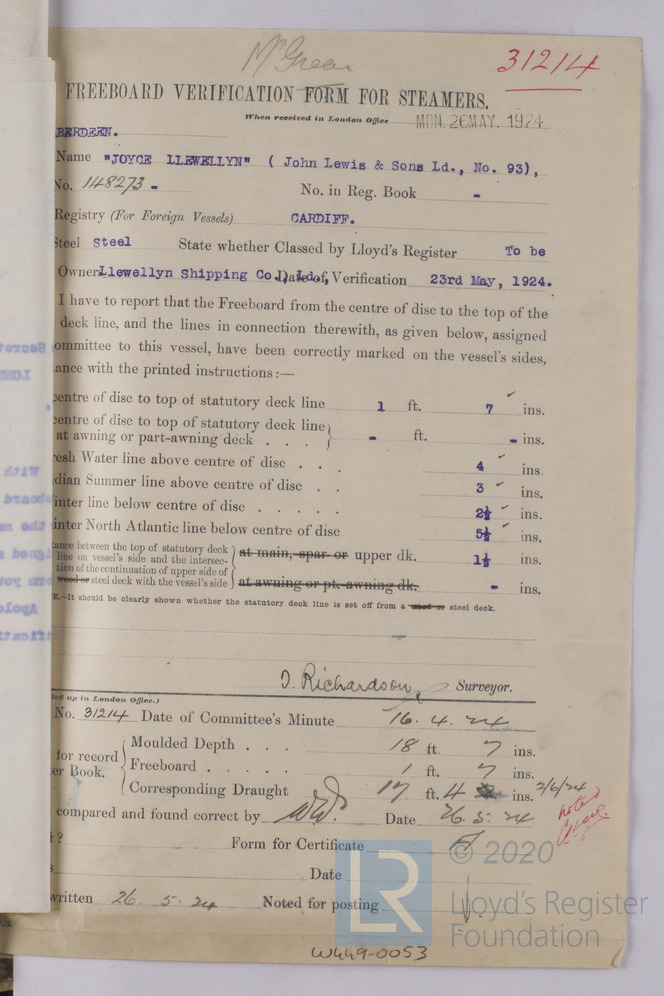 31214
FREEBOARD VERIFICATION FORM FOR STEAMERS.
When received in London Office MON. 26 MAY. 1924
BERDEEN.
Name "JOYCE LLEWELLYN" ( John Lewis & Sons Ld., No. 93),
No. 148273 - No. in Reg. Book -
Registry (For Foreign Vessels) CARDIFF.
Steel Steel State whether Classed by Lloyd's Register To be
Owners Llewellyn Shipping Co., Ld., Date of Verification 23rd May, 1924.
I have to report that the Freeboard from the centre of disc to the top of the
deck line, and the lines in connection therewith, as given below, assigned
ommittee to this vessel, have been correctly marked on the vessel's sides,
ance with the printed instructions :—
centre of disc to top of statutory deck line 1 ft. 7 ins.
centre of disc to top of statutory deck line
at awning or part-awning deck . . . - ft. - ins.
esh Water line above centre of disc . . . 4 ins.
dian Summer line above centre of disc . . 3 ins.
inter line below centre of disc . . . . . 2½ ins.
inter North Atlantic line below centre of disc 5½ ins.
tance between the top of statutory deck
line on vessel's side and the intersec-
tion of the continuation of upper side of
wood or steel deck with the vessel's side
at main, spar or upper dk. 1½ ins.
at awning or pt.-awning dk. - ins.
E.—It should be clearly shown whether the statutory deck line is set off from a wood or steel deck.
Richardson, Surveyor.
led up in London Office.)
No. 31214 Date of Committee's Minute 16. 4. 24
for record
er Book.
Moulded Depth . . . 18 ft. 7 ins.
Freeboard . . . . . 1 ft. 7 ins.
Corresponding Draught 17 ft. 4 ins. 2/6/24
noted
compared and found correct by Date 26. 5. 24
? Form for Certificate
Date
written 26. 5. 24 Noted for posting
W449-0053
LR
© 2020
Lloyd's Register
Foundation